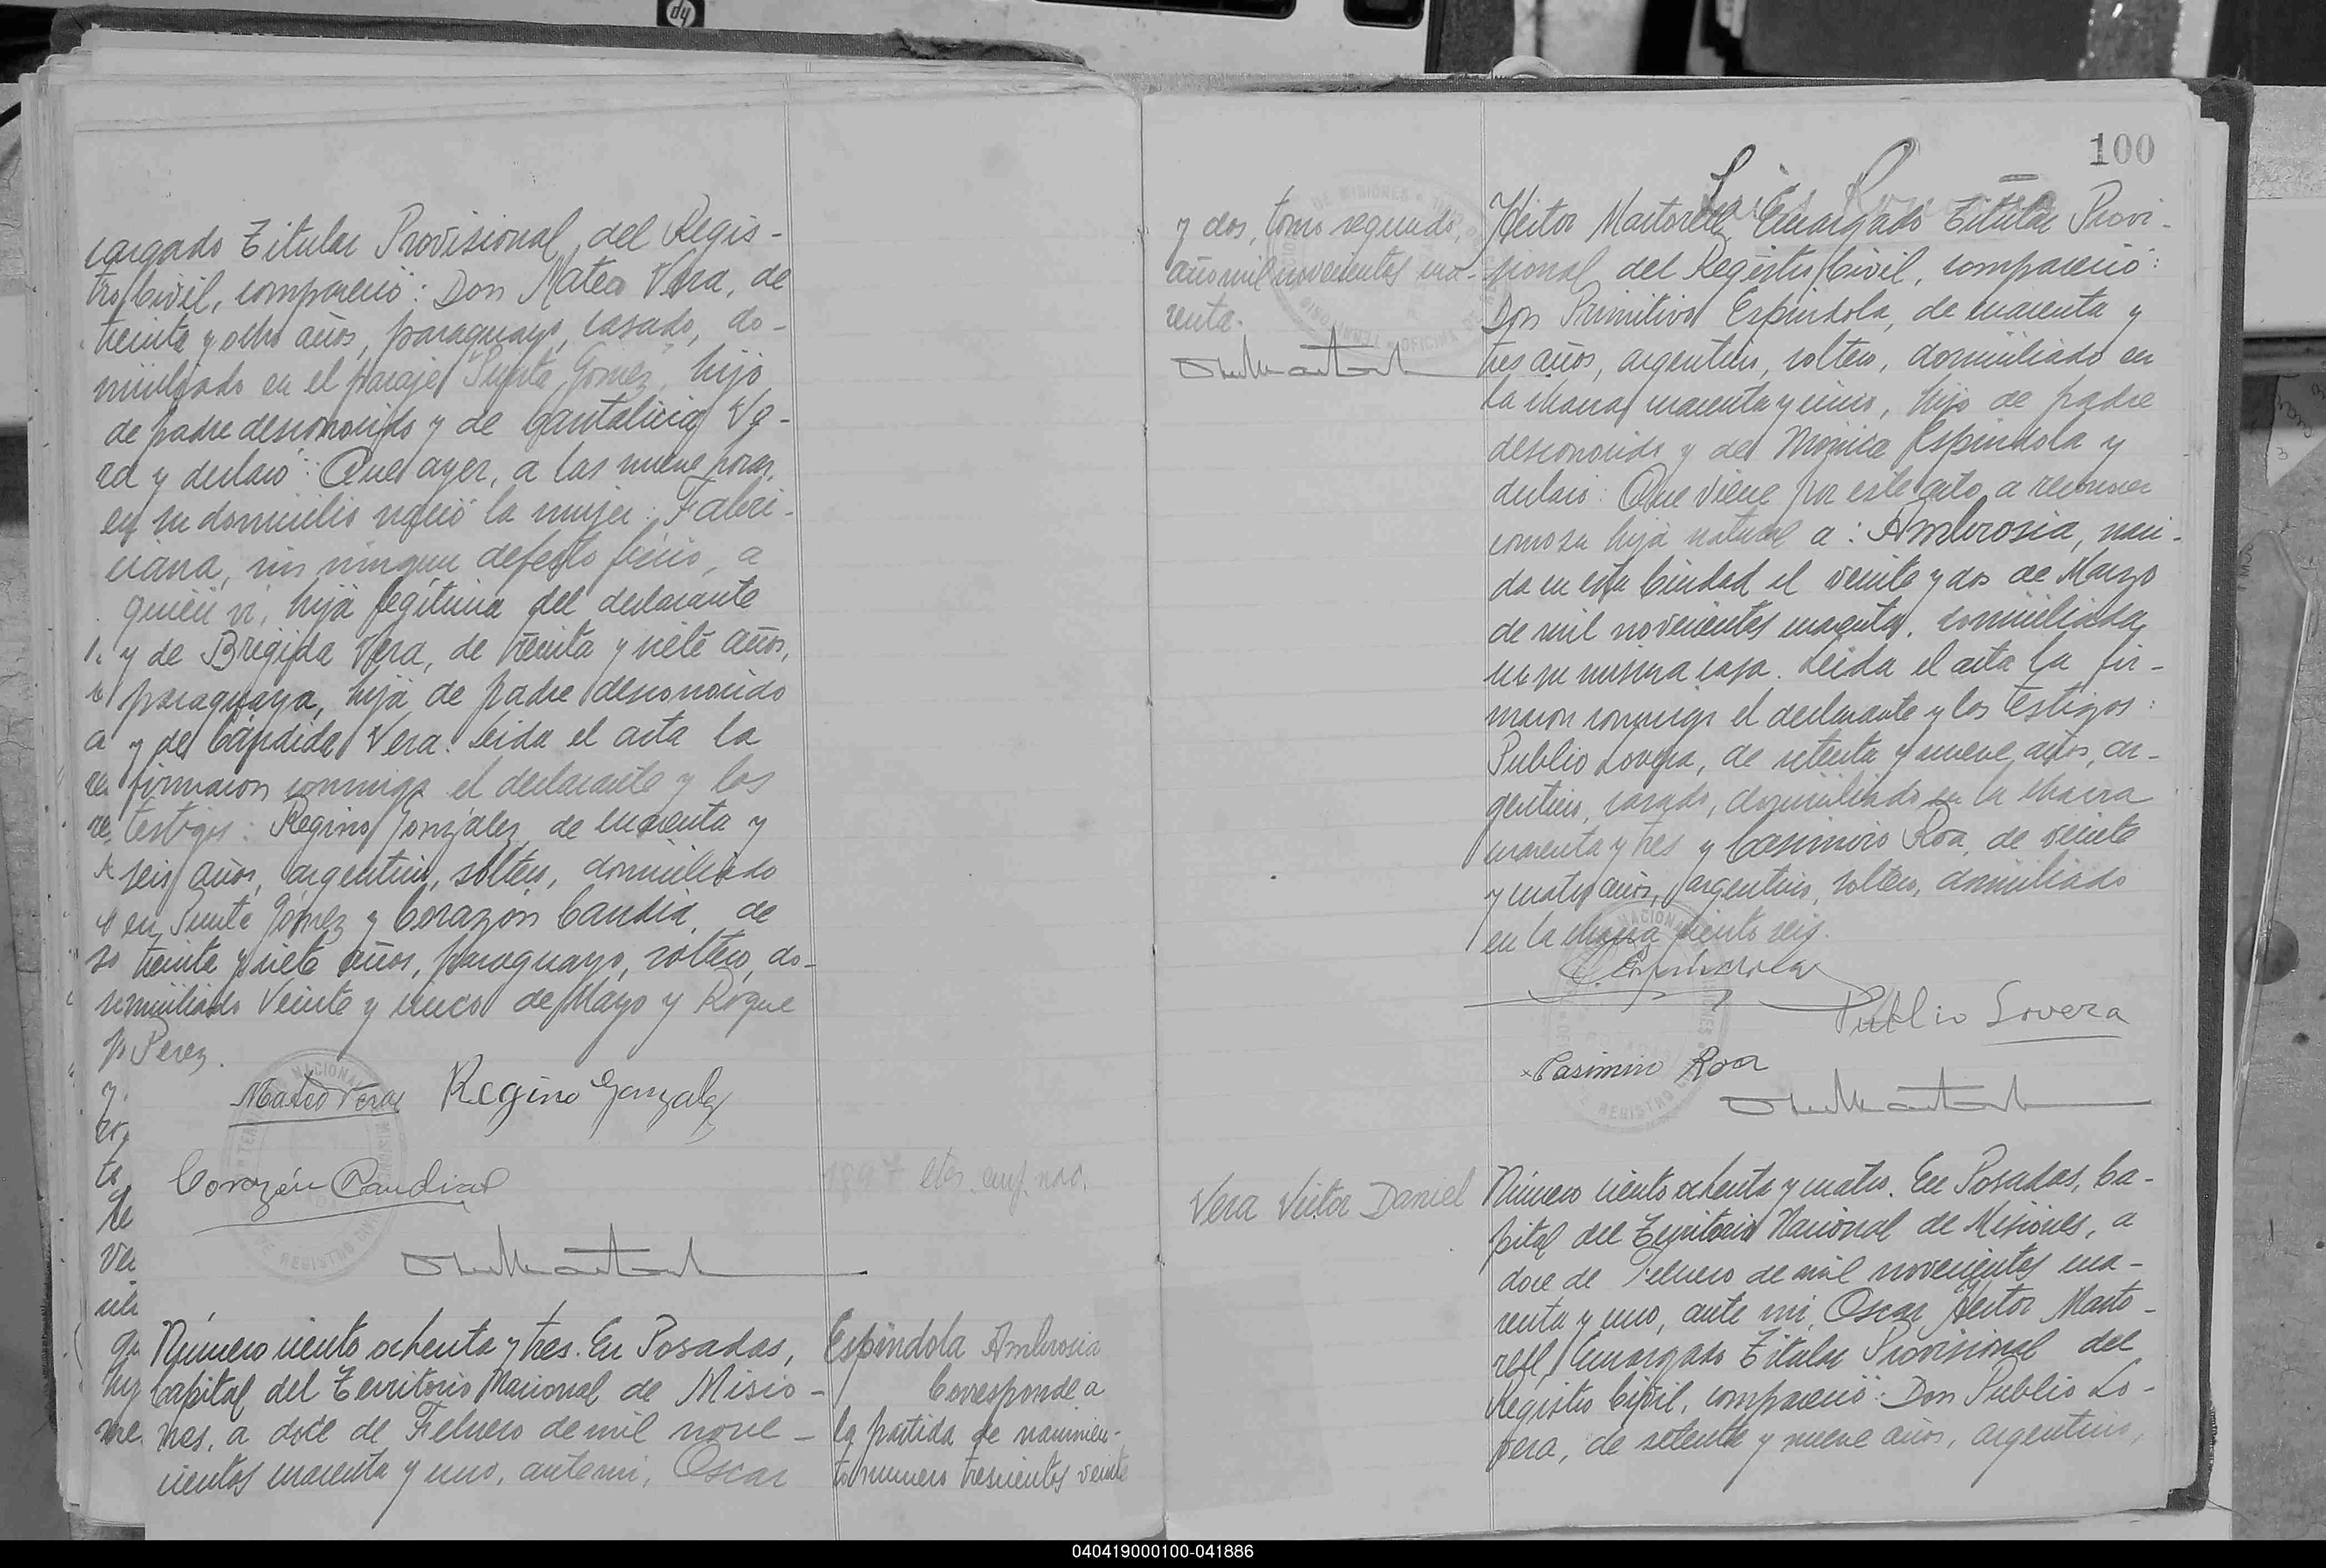 cargado Titular Provisional, del Regis-
tro Civil, compareció: Don Mateo Vera, de
treinta y ocho años, paraguayo, casado, do-
miciliado en el paraje Puente Gómez, hijo
de padre desconocido y de Gantalicia Ve-
ra y declaró: Que ayer, a las nueve horas,
en su domicilio nació la mujer: Fabri-
ciana, sin ningun defecto físico, a
quien ví, hija legítima del declarante
y de Brígida Vera, de treinta y siete años,
paraguaya, hija de padre desconocido
y de Cándida Vera. Leida el acta la
firmaron conmigo el declarante y los
testigos: Regino González, de cuarenta y
seis años, argentino, soltero, domiciliado
en Puente Gómez y Corazón Candia, de
treinta y siete años, paraguayo, soltero, do-
miciliado Veinte y cinco de Mayo y Roque
Perez.
Mateo Vera Regino Gonzalez
Corazón Candia
etc. enf. nac.
Número ciento ochenta y tres. En Posadas,
Capital del Territorio Nacional de Misio-
nes, a doce de Febrero de mil nove-
cientos cuarenta y uno, ante mi, Oscar
Espíndola Ambrosia
Corresponde a
la partida de nacimien-
to numero trescientos veinte
100
y dos, tomo segundo,
año mil novecientos cua-
renta.
Héctor Martorell, Encargado Titular Provi-
sional del Registro Civil, compareció:
Don Primitivo Espíndola, de cuarenta y
tres años, argentino, soltero, domiciliado en
la chacra cuarenta y cinco, hijo de padre
desconocido y de Mónica Espíndola y
declaró: Que viene por este acto a reconocer
como su hija natural a: Ambrosia, naci-
da en esta Ciudad el veinte y dos de Marzo
de mil novecientos cuarenta, domiciliada
en su misma casa. Leida el acta la fir-
maron conmigo el declarante y los testigos:
Publio Lovera, de setenta y nueve años, ar-
gentino, casado, domiciliado en la chacra
cuarenta y tres y Casimiro Roa, de veinte
y cuatro años, argentino, soltero, domiciliado
en la chacra ciento seis.
P. Espindola
Publio Lovera
Casimiro Roa
Vera Victor Daniel
Número ciento ochenta y cuatro. En Posadas, Ca-
pital del Territorio Nacional de Misiones, a
doce de Febrero de mil novecientos cua-
renta y uno, ante mi, Oscar Héctor Marto-
rell, Encargado Titular Provisional del
Registro Civil, compareció: Don Publio Lo-
vera, de setenta y nueve años, argentino,
040419000100-041886